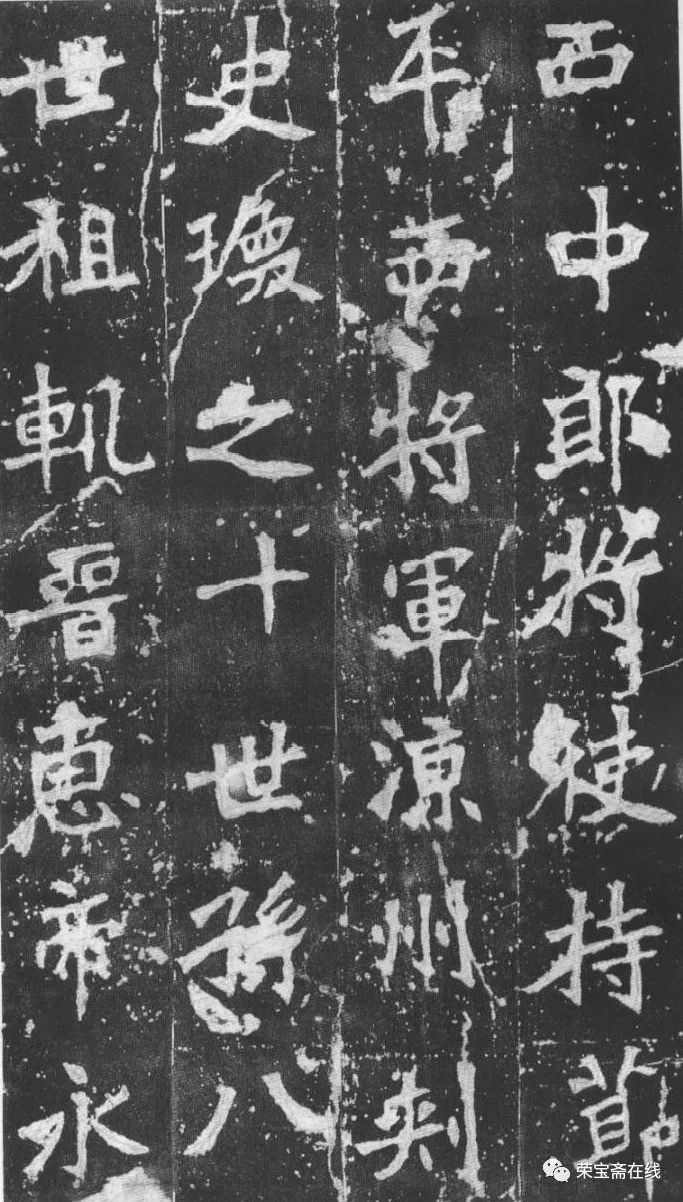 西中郎將使持節
平西將軍涼州刾
史瓊之十世孫八
世祖軌晉惠帝永
荣宝斋在线